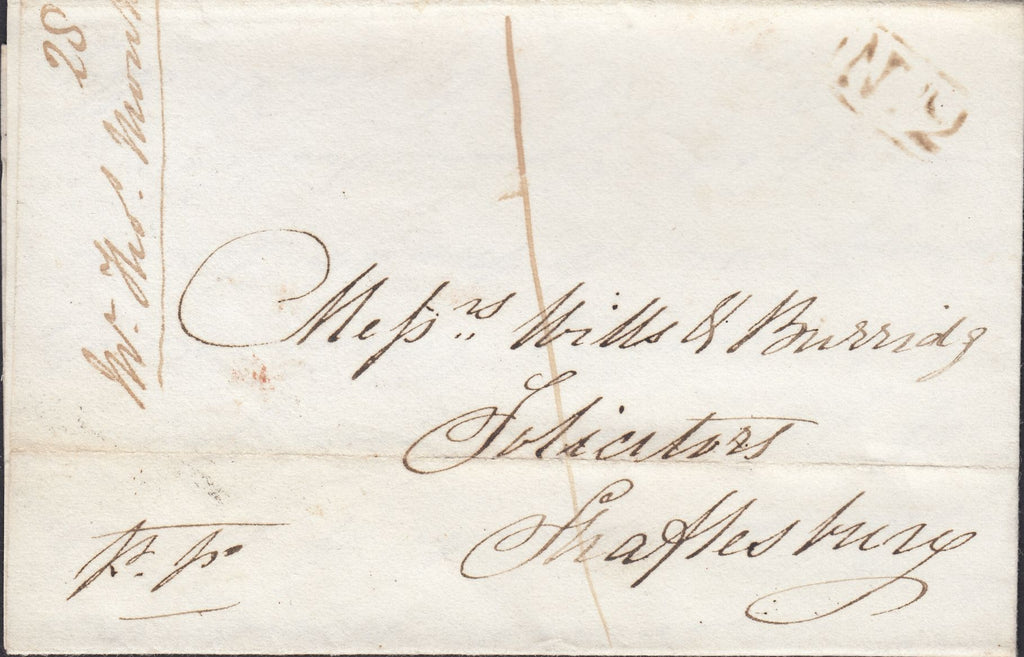 28
Mr. Thos. Monk
No. 2
Messrs. Wills & Burridg
Solicitors
Shaftesbury